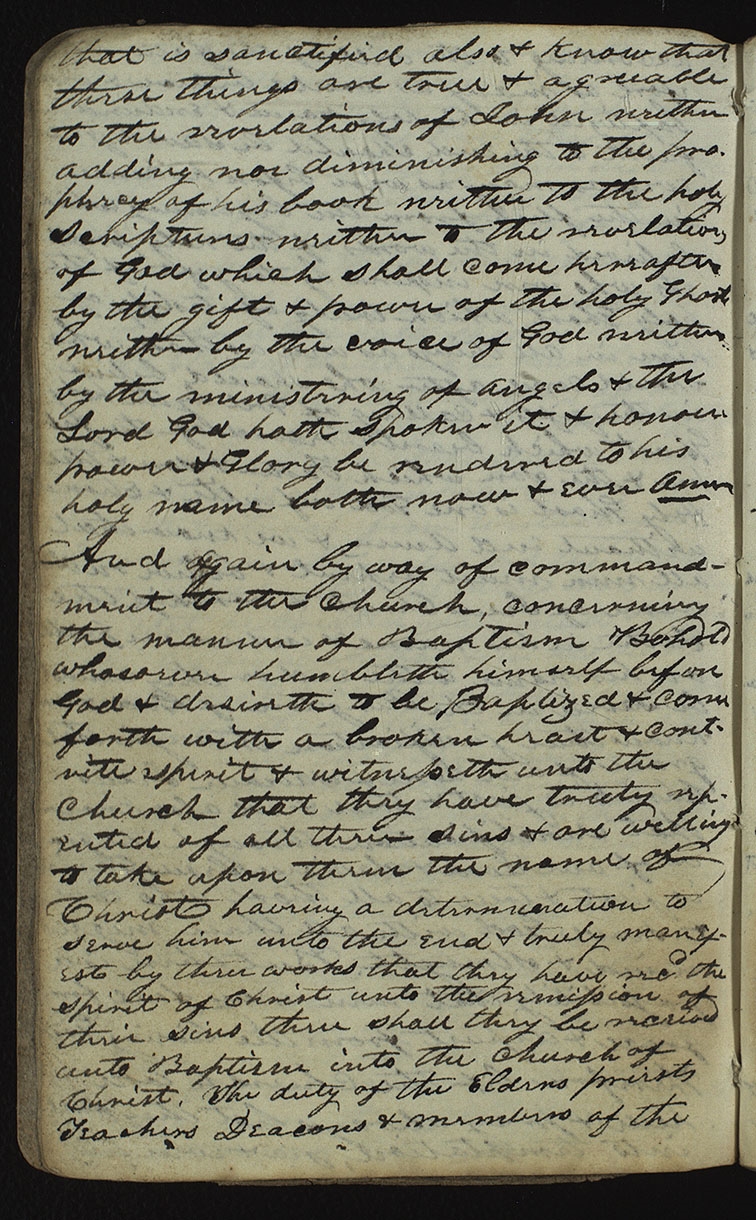 that is sanctified also & know that
these things are true & agreeable
to the revelations of John neither
adding nor diminishing to the pro-
phecy of his book neither to the holy
Scriptures neither to the revelations
of God which shall come hereafter
by the gift & power of the holy Ghost
neither by the voice of God neither
by the ministering of angels & the
Lord God hath spoken it & honour
power & Glory be rendered to his
holy name both now & ever Amen
And again by way of command-
ment to the Church, concerning
the manner of Baptism Behold
whosoever humbleth himself before
God & desireth to be Baptized & come
forth with a broken heart & cont-
rite spirit & witnesseth unto the
Church that they have truly rep-
ented of all their sins & are willing
to take upon them the name of
Christ having a determination to
serve him unto the end & truly manif-
est by their works that they have recd the
spirit of Christ unto the remission of
their sins then shall they be received
unto Baptism into the Church of
Christ. The duty of the Elders priests
Teachers Deacons & members of the